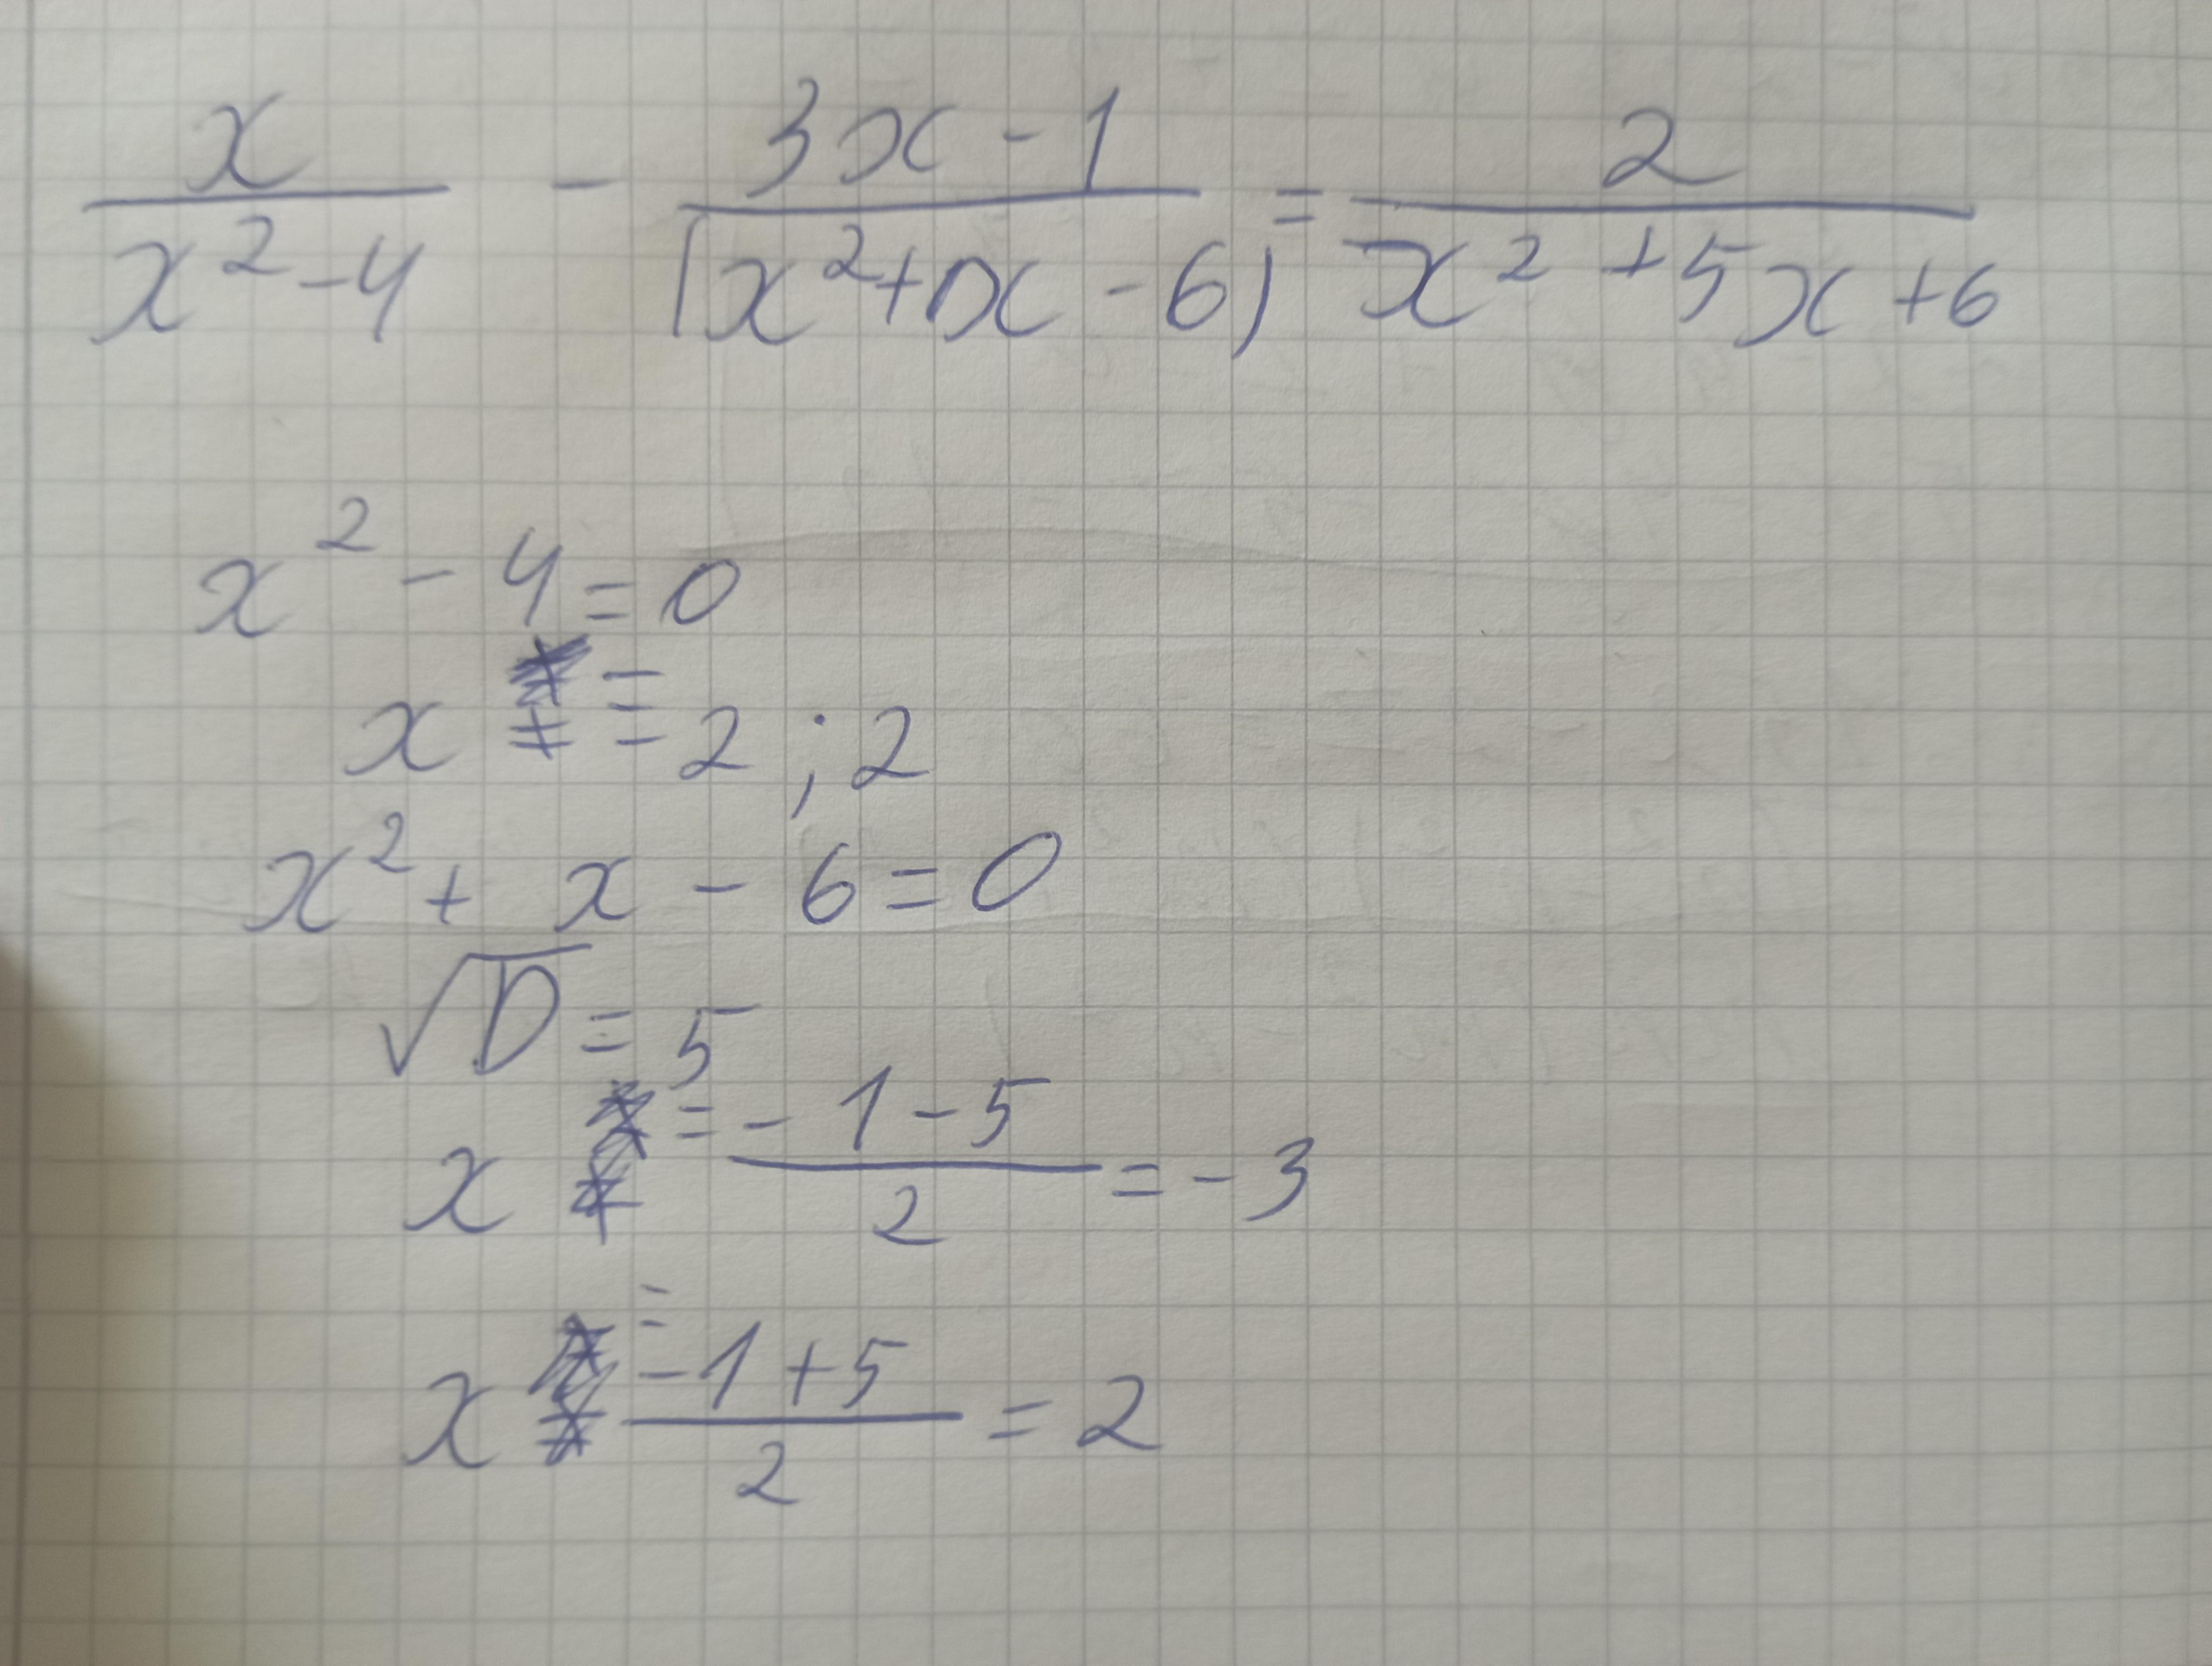 x/(x²-4) - (3x-1)/(x²+x-6) = 2/(x²+5x+6)
x² - 4 = 0
x = -2 ; 2
x² + x - 6 = 0
√D = 5
x = (-1-5)/2 = -3
x = (-1+5)/2 = 2